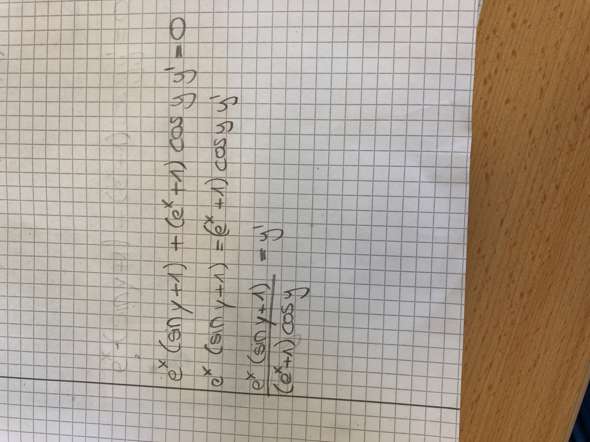 e^x (sin y + 1) + (e^x + 1) cos y y' = 0
e^x (sin y + 1) = (e^x + 1) cos y y'
e^x (sin y + 1) / (e^x + 1) cos y = y'